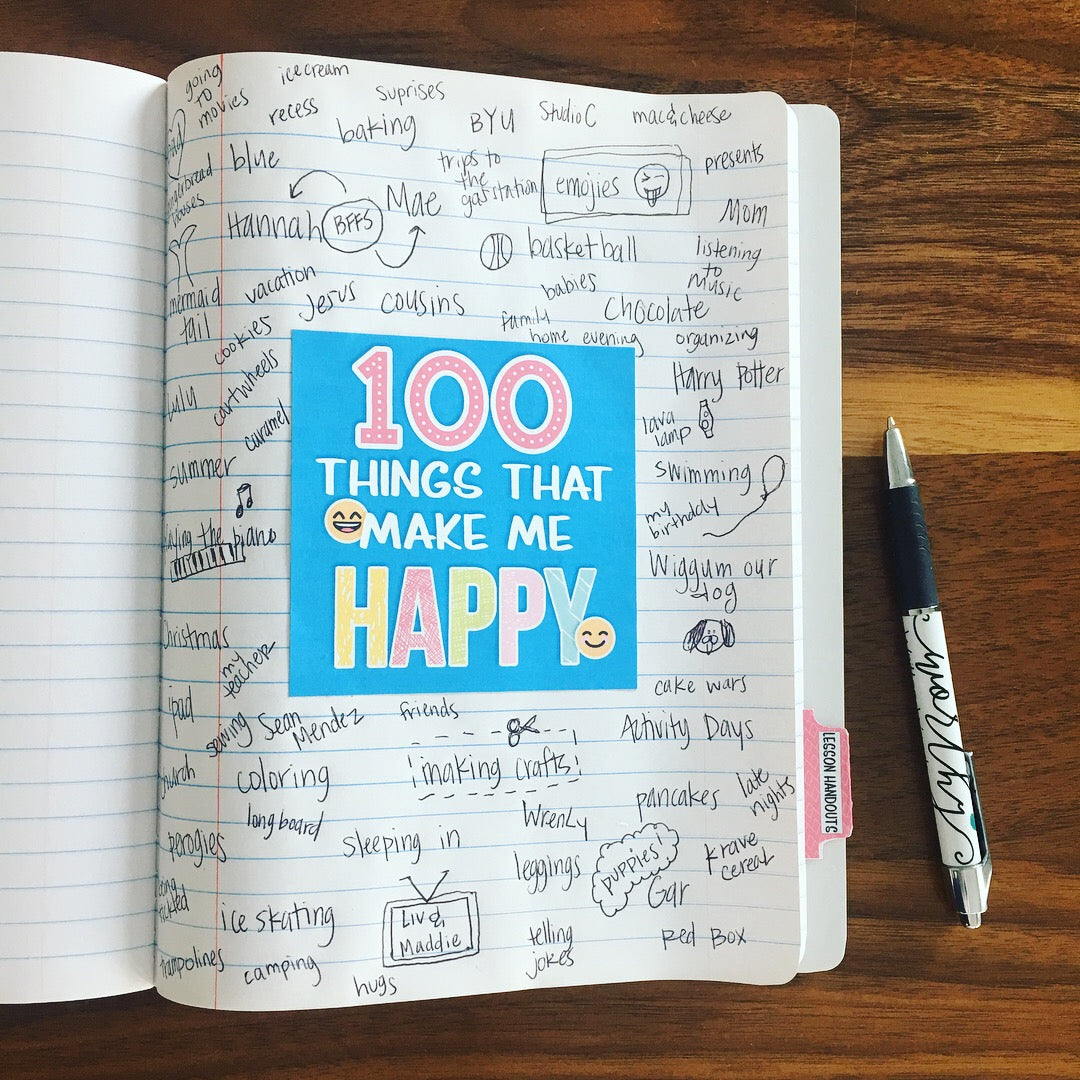 going
TO
movies
icecream
recess
suprises
baking
BYU
Studio C
mac & cheese
blue
trips to
the
gas station
emojies
presents
Mae
Hannah
BFFS
Mom
houses
basketball
listening
to
Music
mermaid
tail
vacation
Jesus
cousins
babies
Chocolate
family
home evening
organizing
cookies
cartwheels
caramel
Harry Potter
lava
lamp
summer
swimming
my
birthday
100
THINGS THAT
MAKE ME
HAPPY
the piano
Wiggum our
dog
Christmas
my
teacher
cake wars
ipad
sewing
Sean
Mendez
friends
Activity Days
coloring
making crafts!
longboard
Wrenly
pancakes
late
nights
perogies
sleeping in
leggings
puppies!
Krave
cereal
Gar
ice skating
Liv &
Maddie
telling
jokes
Red Box
trampolines
camping
hugs
LESSON HANDOUTS
worthy